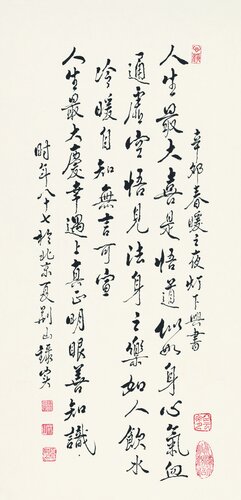 辛卯春暖之夜灯下興書
人生最大喜是悟道似如身心氣血
通虛空悟見法身之樂如人飲水
冷暖自知無言可宣
人生最大慶幸遇上真正明眼善知識
时年八十七於北京夏荆山